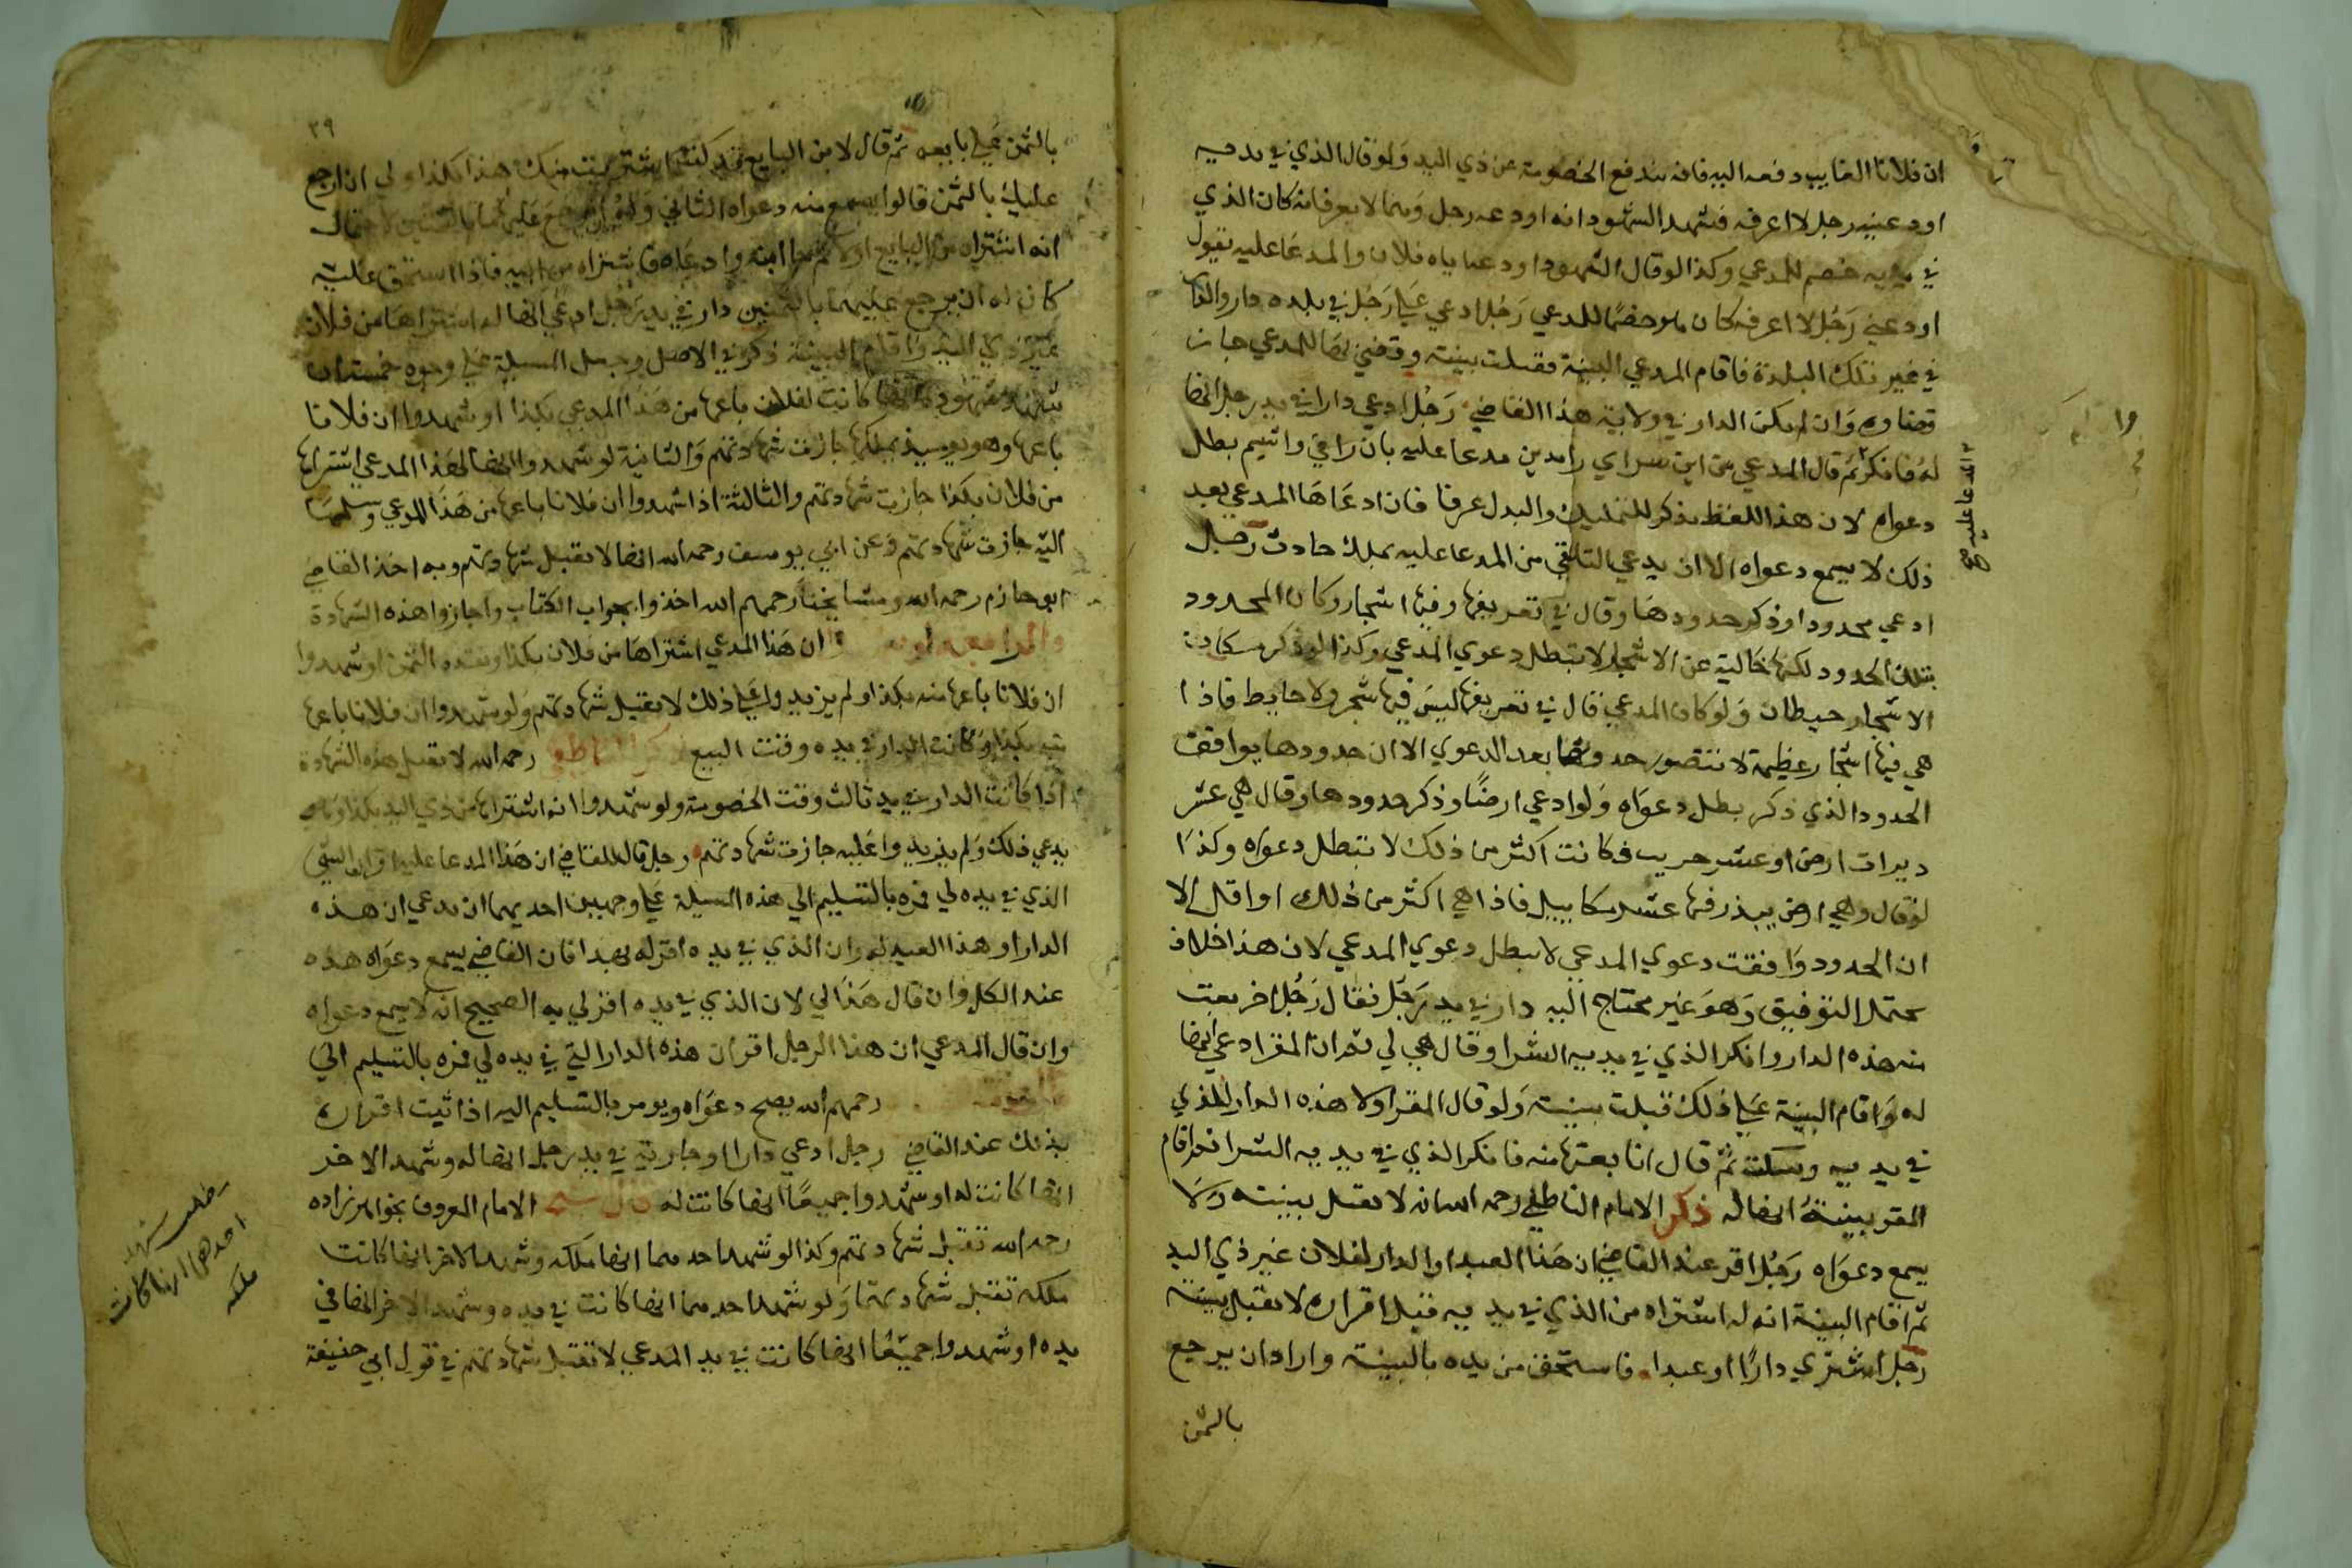 ان فلانا الغايب دفعه اليه فانه يندفع الخصومة عن ذي اليد ولو قال الذي في يديه
اودعنيه رجل لا اعرفه فشهد الشهود انه اودعه رجل لا يعرفانه كان الذي
في يديه خصم للمدعي وكذا لو قال الشهود اودعه اياه فلان والمدعا عليه يقول
اودعني رجل لا اعرفه كان هو خصما للمدعي رجل ادعي علي رجل في بلده دارا والدار
في غير تلك البلدة فاقام المدعي البينة فقبلت بينته وقضي بها للمدعي جاز
قضاوه وان لم يكن الدار في ولاية هذا القاضي رجل ادعي دارا في يد رجل انها
له فانكر ثم قال المدعي من اين سراي
دعواه لان هذا اللفظ يذكر للتمليك والبدل عرفا فان ادعاها المدعي بعد
ذلك لا يسمع دعواه الا ان يدعي التلقي من المدعا عليه بملك حادث رجل
ادعي محدودا وذكر حدودها وقال في تعريفها وفيها اشجار وكان المحدود
بتلك الحدود لكنها خالية عن الاشجار لا تبطل دعوي المدعي وكذا لو ذكر مكان
الاشجار حيطان ولو كان المدعي قال في تعريفها ليس فيها شجر ولا حايط فاذا
هي فيها اشجار عظيمة لا تتصور حدوثها بعد الدعوي الا ان حدودها يوافقت
الحدود الذي ذكر بطل دعواه ولو ادعي ارضا وذكر حدودها وقال هي عشر
ديرات ارض او عشر جريب فكانت اكثر من ذلك لا تبطل دعواه وكذا
لو قال وهي ارض يبذر فيها عشر مكاييل فاذا هي اكثر من ذلك او اقل الا
ان الحدود وافقت دعوي المدعي لا يبطل دعوي المدعي لان هذا خلاف
يحتمل التوفيق وهو غير محتاج اليه دار في يد رجل فقال رجل اخر بعت
منه هذه الدار وانكر الذي في يديه الشرا وقال هي لي ثم ان المقر ادعي انها
له واقام البينة علي ذلك قبلت بينته ولو قال المقر اولا هذه الدار للذي
في يديه وسكت ثم قال انا بعتها منه فانكر الذي في يديه الشرا فاقام
المقر بينة انها له ذكر الامام الناطفي رحمه الله انه لا يقبل بينته ولا
يسمع دعواه رجل اقر عند القاضي ان هذا العبد او الدار لفلان غير ذي اليد
ثم اقام البينة انه له اشتراه من الذي في يديه قبل اقراره لا يقبل بينته
رجل اشتري دارا او عبدا فاستحق من يده بالبينة واراد ان يرجع
بالثمن
المدعا عليه صح
٣٩
بالثمن علي بايعه ثم قال لابن البايع قد كنت اشتريت منك هذا بكذا ولي ان ارجع
عليك بالثمن قالوا يسمع منه دعواه الثاني وله ان يرجع عليهما بالثمنين لاحتمال
انه اشتراه من البايع اولا ثم اشتراه من ابنه فاذا استحق عليه
كان له ان يرجع عليهما بالثمنين دار في يد رجل ادعي انها له اشتراها من فلان
غير ذي اليد واقام البينة ذكر في الاصل وجعل المسيلة علي وجوه خمسة ان
شهد شهوده انها كانت لفلان باعها من هذا المدعي بكذا او شهدوا ان فلانا
باعها وهو يوميذ يملكها جازت شهادتهم والثانية لو شهدوا انها لهذا المدعي اشتراها
من فلان بكذا جازت شهادتهم والثالثة اذا شهدوا ان فلانا باعها من هذا المدعي وسلمها
اليه جازت شهادتهم وعن ابي يوسف رحمه الله انها لا تقبل شهادتهم وبه اخذ القاضي
ابو حازم رحمه الله ومشايخنا رحمهم الله اخذوا بجواب الكتاب واجازوا هذه الشهادة
والرابعة لو شهدوا ان هذا المدعي اشتراها من فلان بكذا ونقده الثمن او شهدوا
ان فلانا باعها منه بكذا ولم يزيدوا علي ذلك لا تقبل شهادتهم ولو شهدوا ان فلانا باعها
منه بكذا وكانت الدار في يده وقت البيع ذكر الناطفي رحمه الله لا تقبل هذه الشهادة
اذا كانت الدار في يد ثالث وقت الخصومة ولو شهدوا انه اشتراها من ذي اليد بكذا وهو
يدعي ذلك ولم يزيدوا عليه جازت شهادتهم رجل قال للقاضي ان هذا المدعا عليه اقر ان الشي
الذي في يده لي فمره بالتسليم الي هذه المسيلة علي وجهين احديهما ان يدعي ان هذه
الدار او هذا العبد له وان الذي في يده اقر له بهذا فان القاضي يسمع دعواه هذه
عند الكل وان قال هذا لي لان الذي في يده اقر لي به الصحيح انه لا يسمع دعواه
وان قال المدعي ان هذا الرجل اقر ان هذه الدار التي في يده لي فمره بالتسليم الي
رحمهم الله يصح دعواه ويومر بالتسليم اليه اذا ثبت اقراره
بذلك عند القاضي رجل ادعي دارا او جارية في يد رجل انها له وشهد الاخر
انها كانت له او شهدوا جميعا انها كانت له قال الشيخ الامام المعروف بخواهرزاده
رحمه الله تقبل شهادتهم وكذا لو شهد احدهما انها ملكه وشهد الاخر انها كانت
ملكه تقبل شهادتهما ولو شهد احدهما انها كانت في يده وشهد الاخر انها في
يده او شهدوا جميعا انها كانت في يد المدعي لا تقبل شهادتهم في قول ابي حنيفة
مطلب شهد
احدهما انها كانت
ملكه